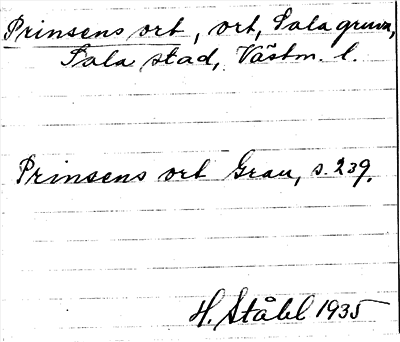 Prinsens ort, ort, Sala gruva,
Sala stad, Västm. l.
Prinsens ort Grau, s. 239.
H. Ståhl 1935